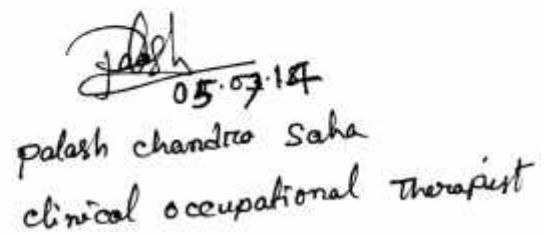 Palash
05.07.17
Palash chandra Saha
clinical occupational Therapist